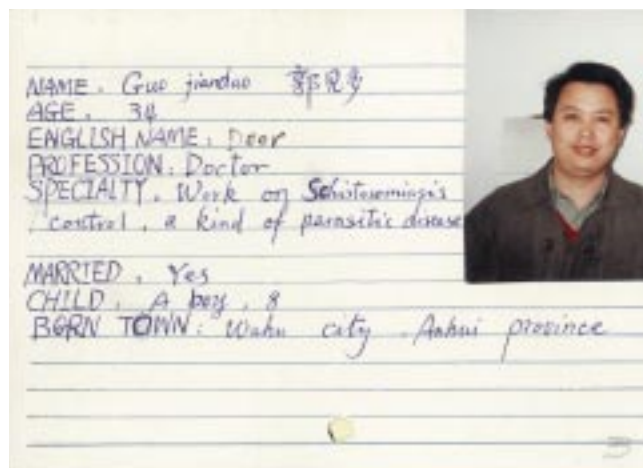 NAME. Guo jianduo 郭见多
AGE. 34
ENGLISH NAME: Deer
PROFESSION: Doctor
SPECIALTY. Work on Schistosomiasis
control, a kind of parasitic disease
MARRIED. Yes
CHILD. A boy, 8
BORN TOWN: Wuhu city. Anhui province